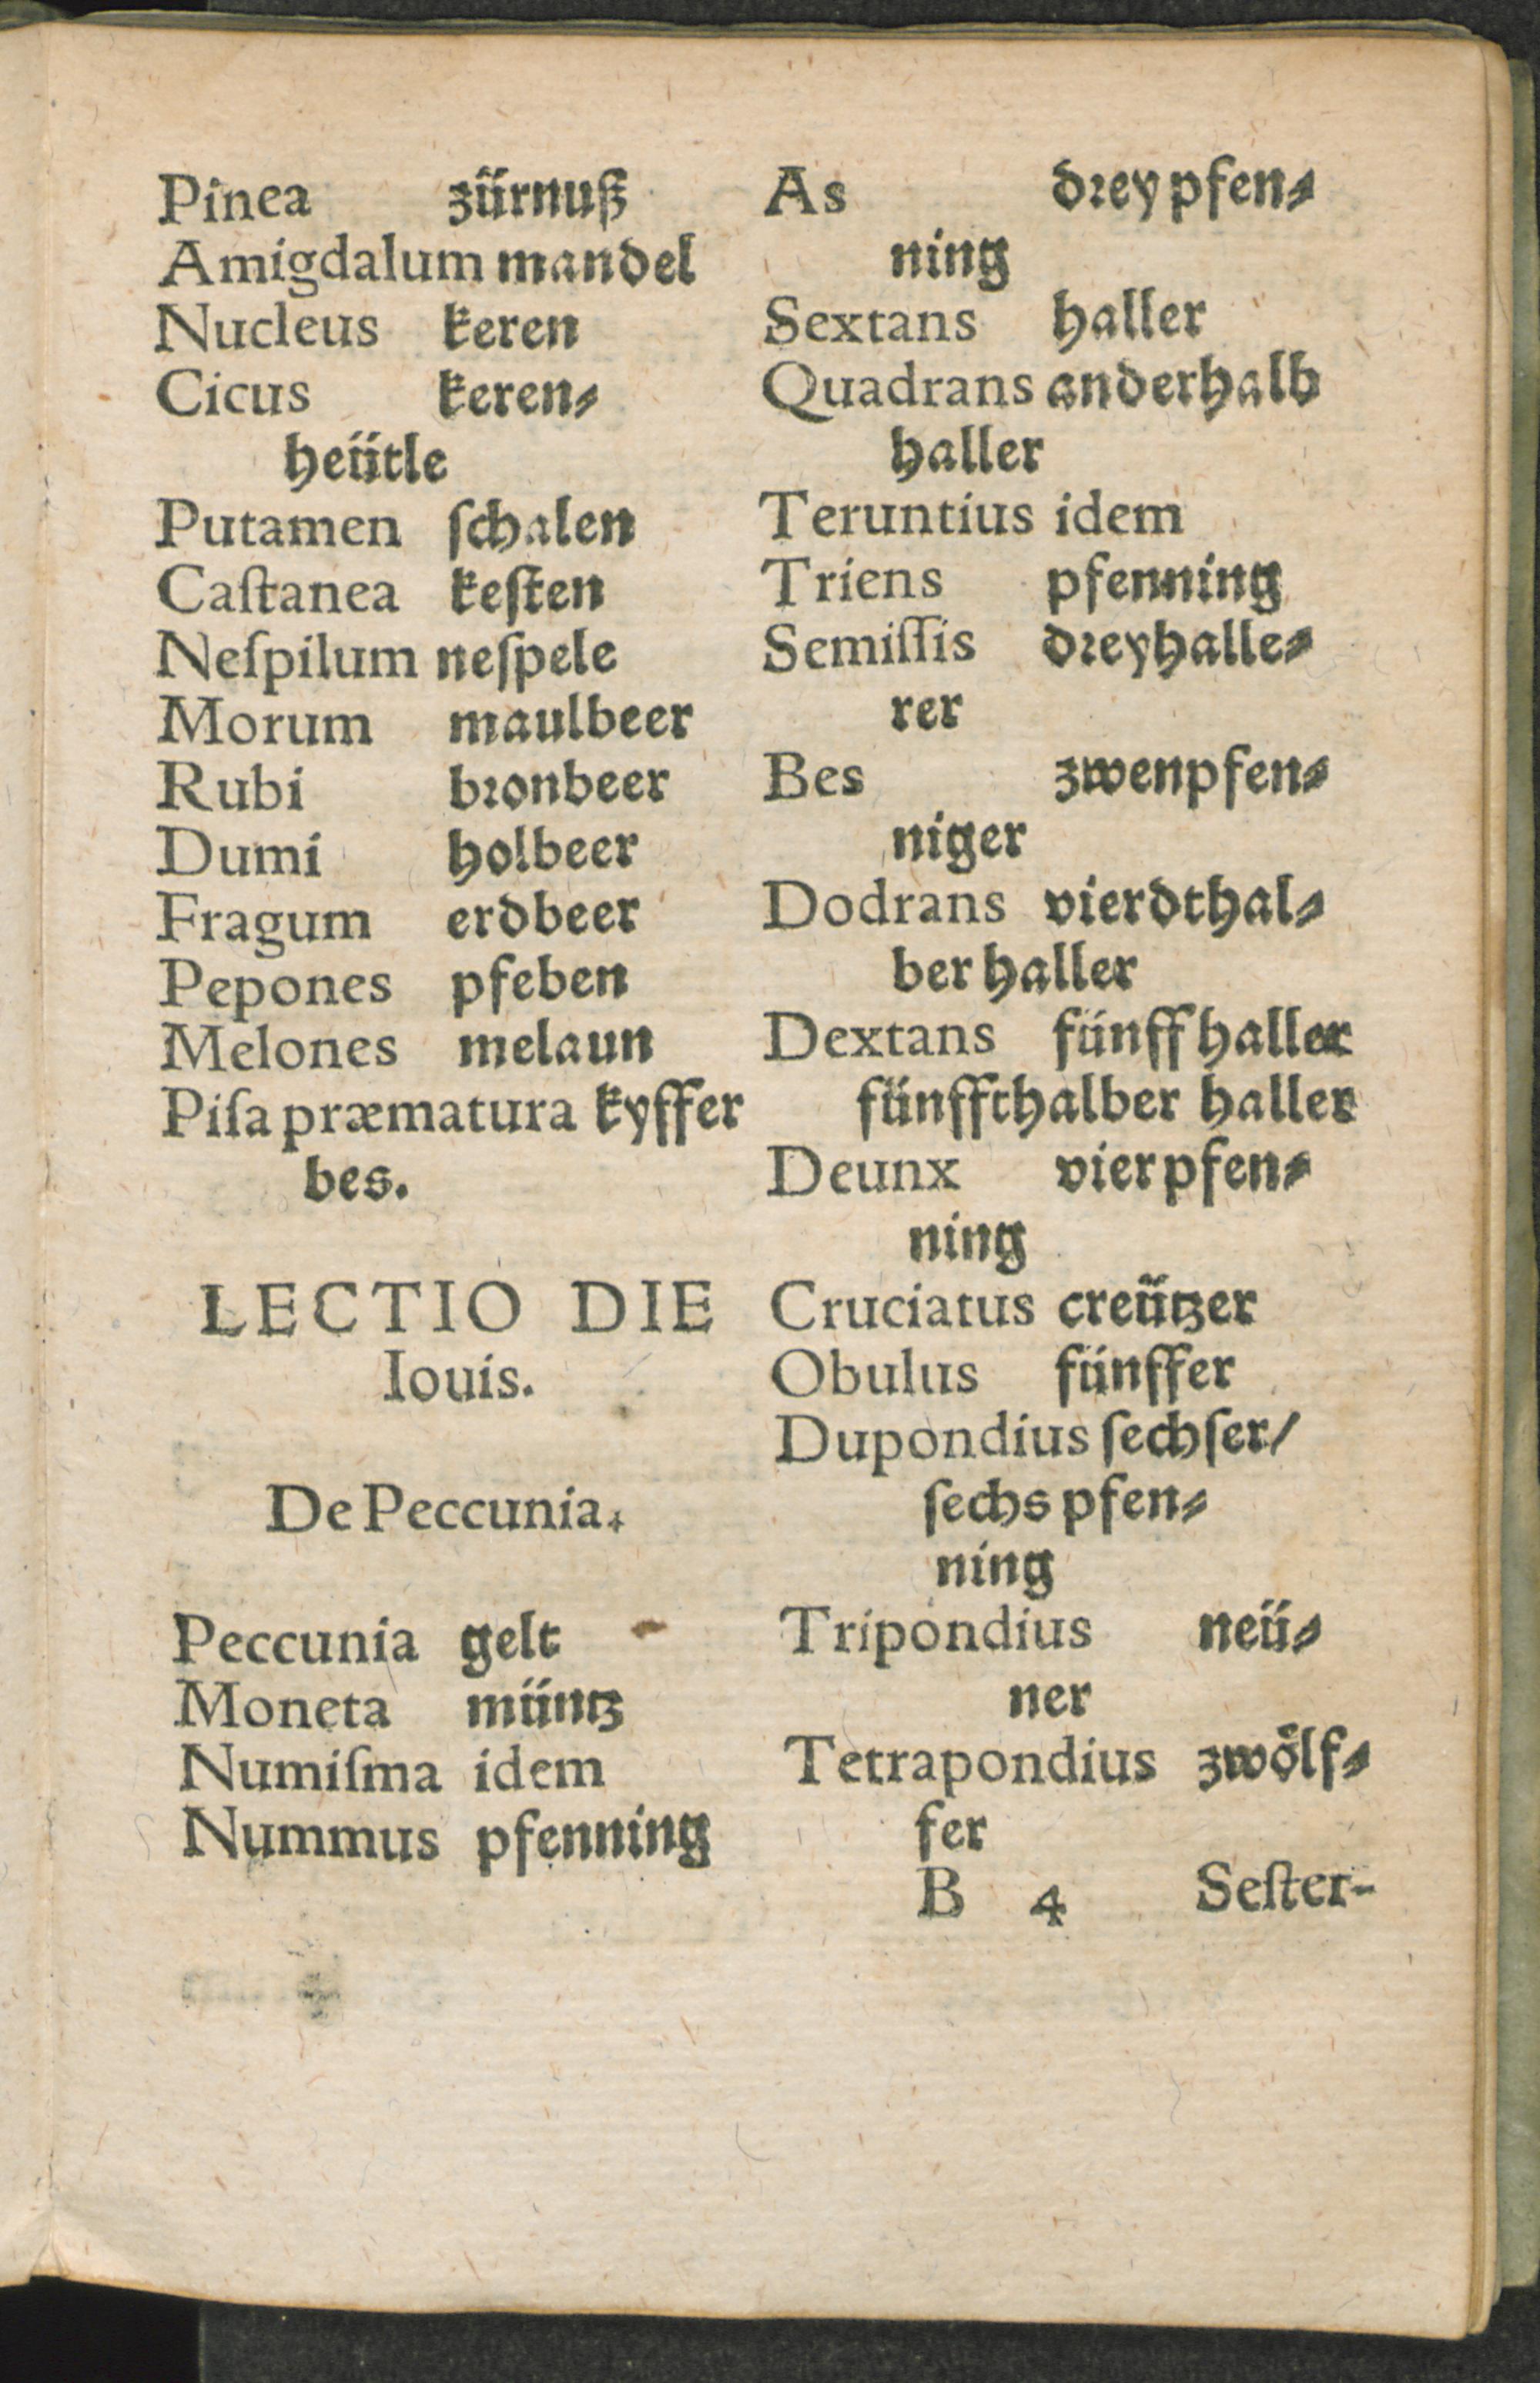 Pinea zürnuß
Amigdalum mandel
Nucleus keren
Cicus keren⸗
heütle
Putamen ſchalen
Caſtanea keſten
Neſpilum neſpele
Morum maulbeer
Rubi bꝛonbeer
Dumi holbeer
Fragum erdbeer
Pepones pfeben
Melones melaun
Piſa præmatura kyffer
bes.
LECTIO DIE
Iouis.
De Peccunia.
Peccunia gelt
Moneta müntz
Numiſma idem
Nummus pfenning
As dꝛey pfen⸗
ning
Sextans haller
Quadrans anderhalb
haller
Teruntius idem
Triens pfenning
Semiſſis dꝛeyhalle⸗
rer
Bes zwenpfen⸗
niger
Dodrans vierdthal⸗
ber haller
Dextans fünff haller
fünffthalber haller
Deunx vier pfen⸗
ning
Cruciatus creützer
Obulus fünffer
Dupondius ſechſer/
ſechs pfen⸗
ning
Tripondius neü⸗
ner
Tetrapondius zwölf⸗
fer
B 4 Seſter-